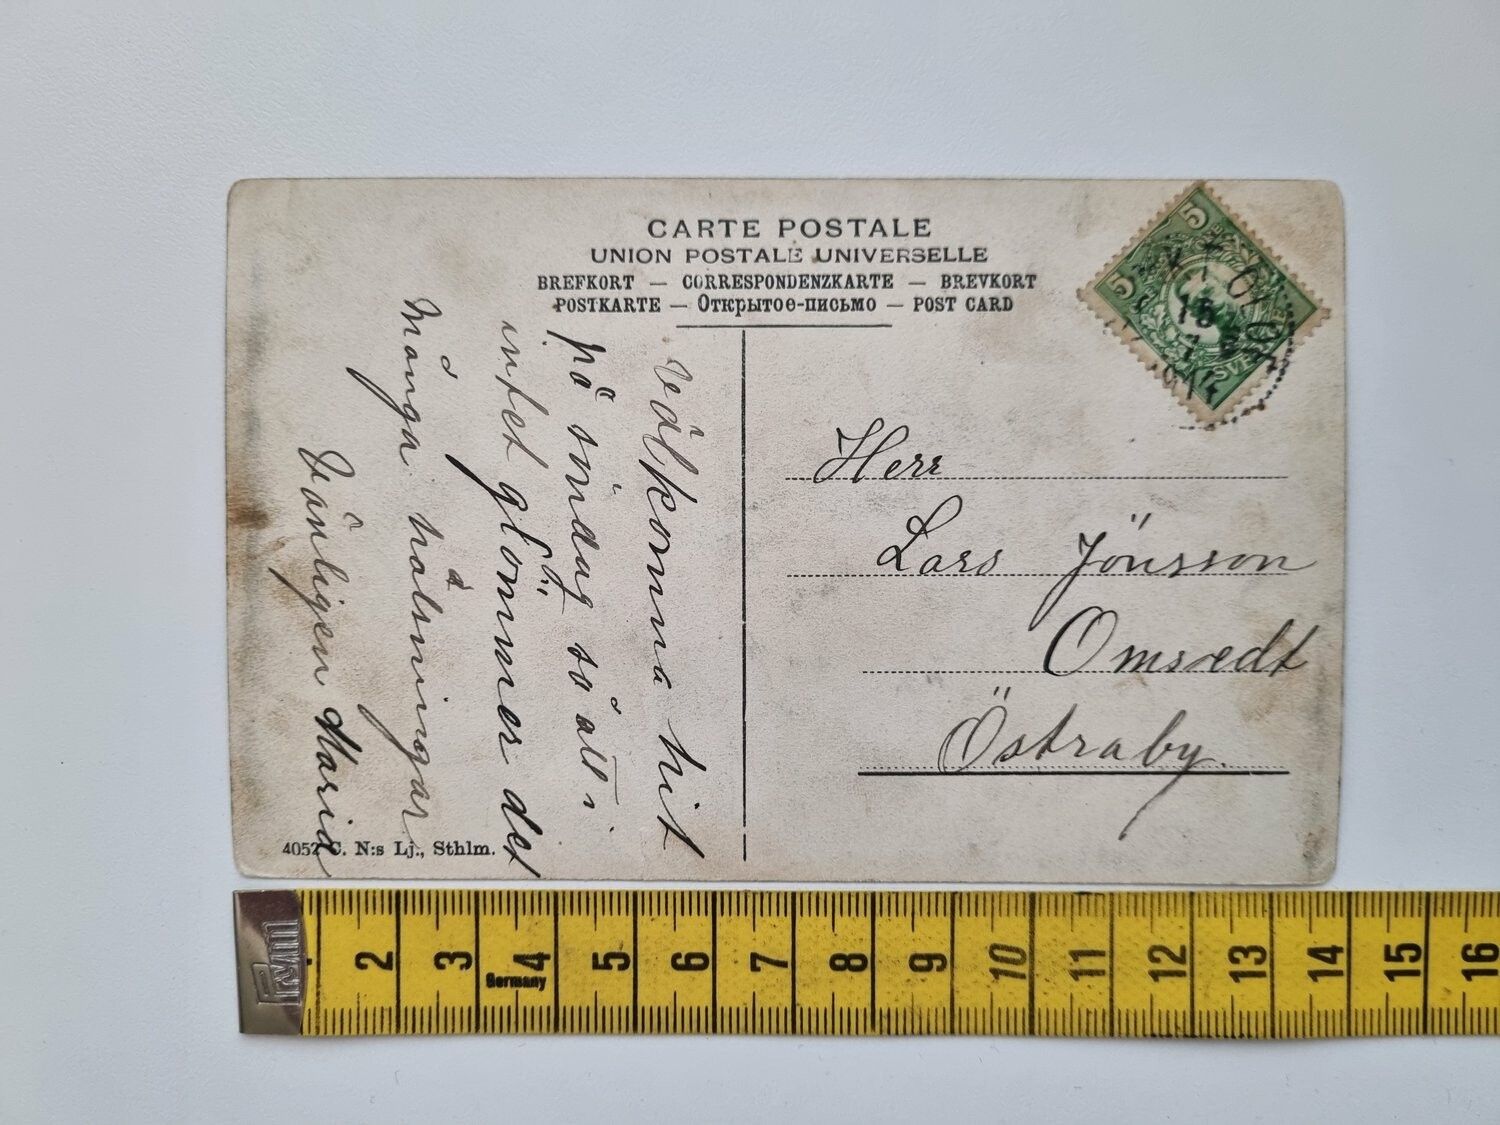 CARTE POSTALE
UNION POSTALE UNIVERSELLE
BREFKORT — CORRESPONDENZKARTE — BREVKORT
POSTKARTE — Открытое-письмо — POST CARD
5 5
SVE
15
välkomna hit
på söndag så att i
intet glömmer det
Många hälsningar
Vänligen Maria
Herr
Lars Jönsson
Omsedt
Östraby.
4057 C. N:s Lj., Sthlm.
Prym
2 3 4 5 6 7 8 9 10 11 12 13 14 15 16
Germany